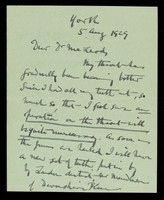 York
5 Aug 1929
Dear Dr McLeod,
My throat has
gradually been becoming better
since I had all my teeth out, so
much so that I feel sure an
operation on the throat will
be quite unnecessary. As soon as
the gums are healed I will have
a new set of teeth put in by
my London dentist Mr
of Devonshire Place